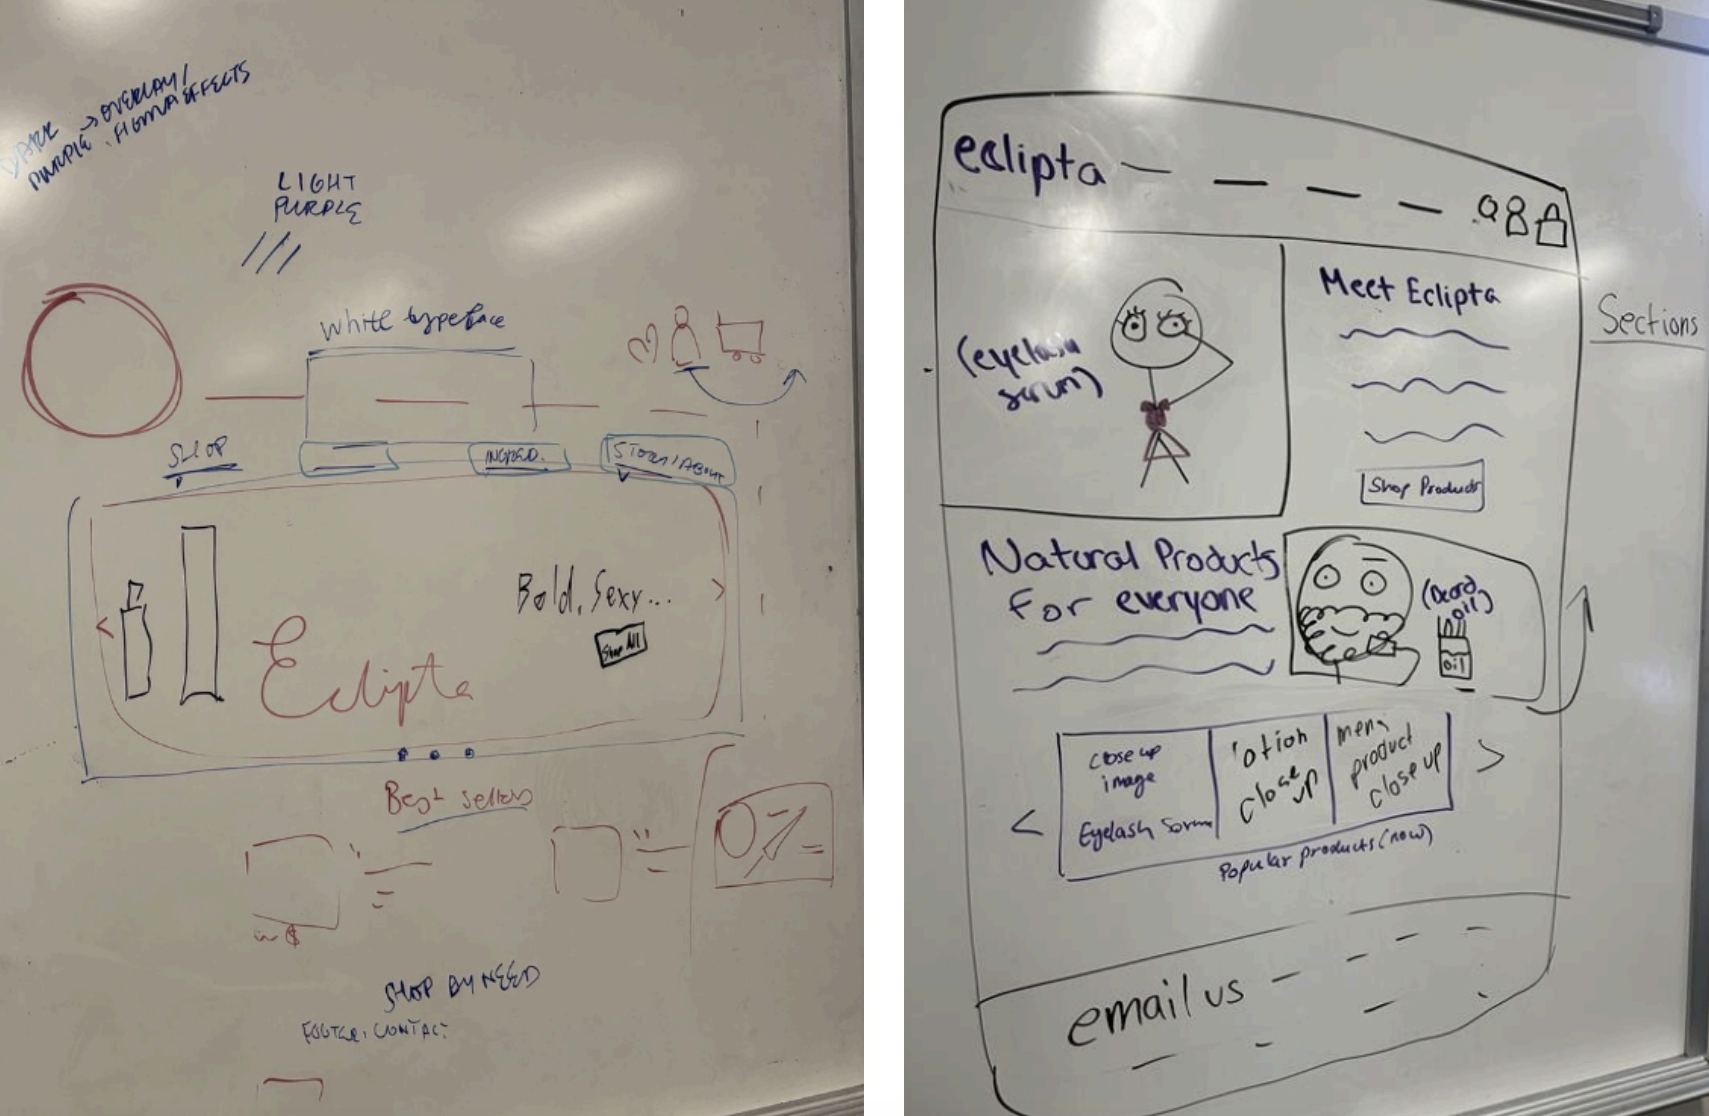 DARK → OVERLAY/
PURPLE. FIGMA EFFECTS
LIGHT
PURPLE
White typeface
SHOP
INGRED.
STORY/ABOUT
Bold, Sexy...
Shop All
Eclipta
Best sellers
$
SHOP BY NEED
FOOTER, CONTACT
eclipta
Meet Eclipta
Sections
(eyelash
serum)
Shop Products
Natural Products
For everyone
oil)
oil
close up
image
Eyelash Serum
lotion
close
up
mens
product
close up
< >
Popular products (now)
email us